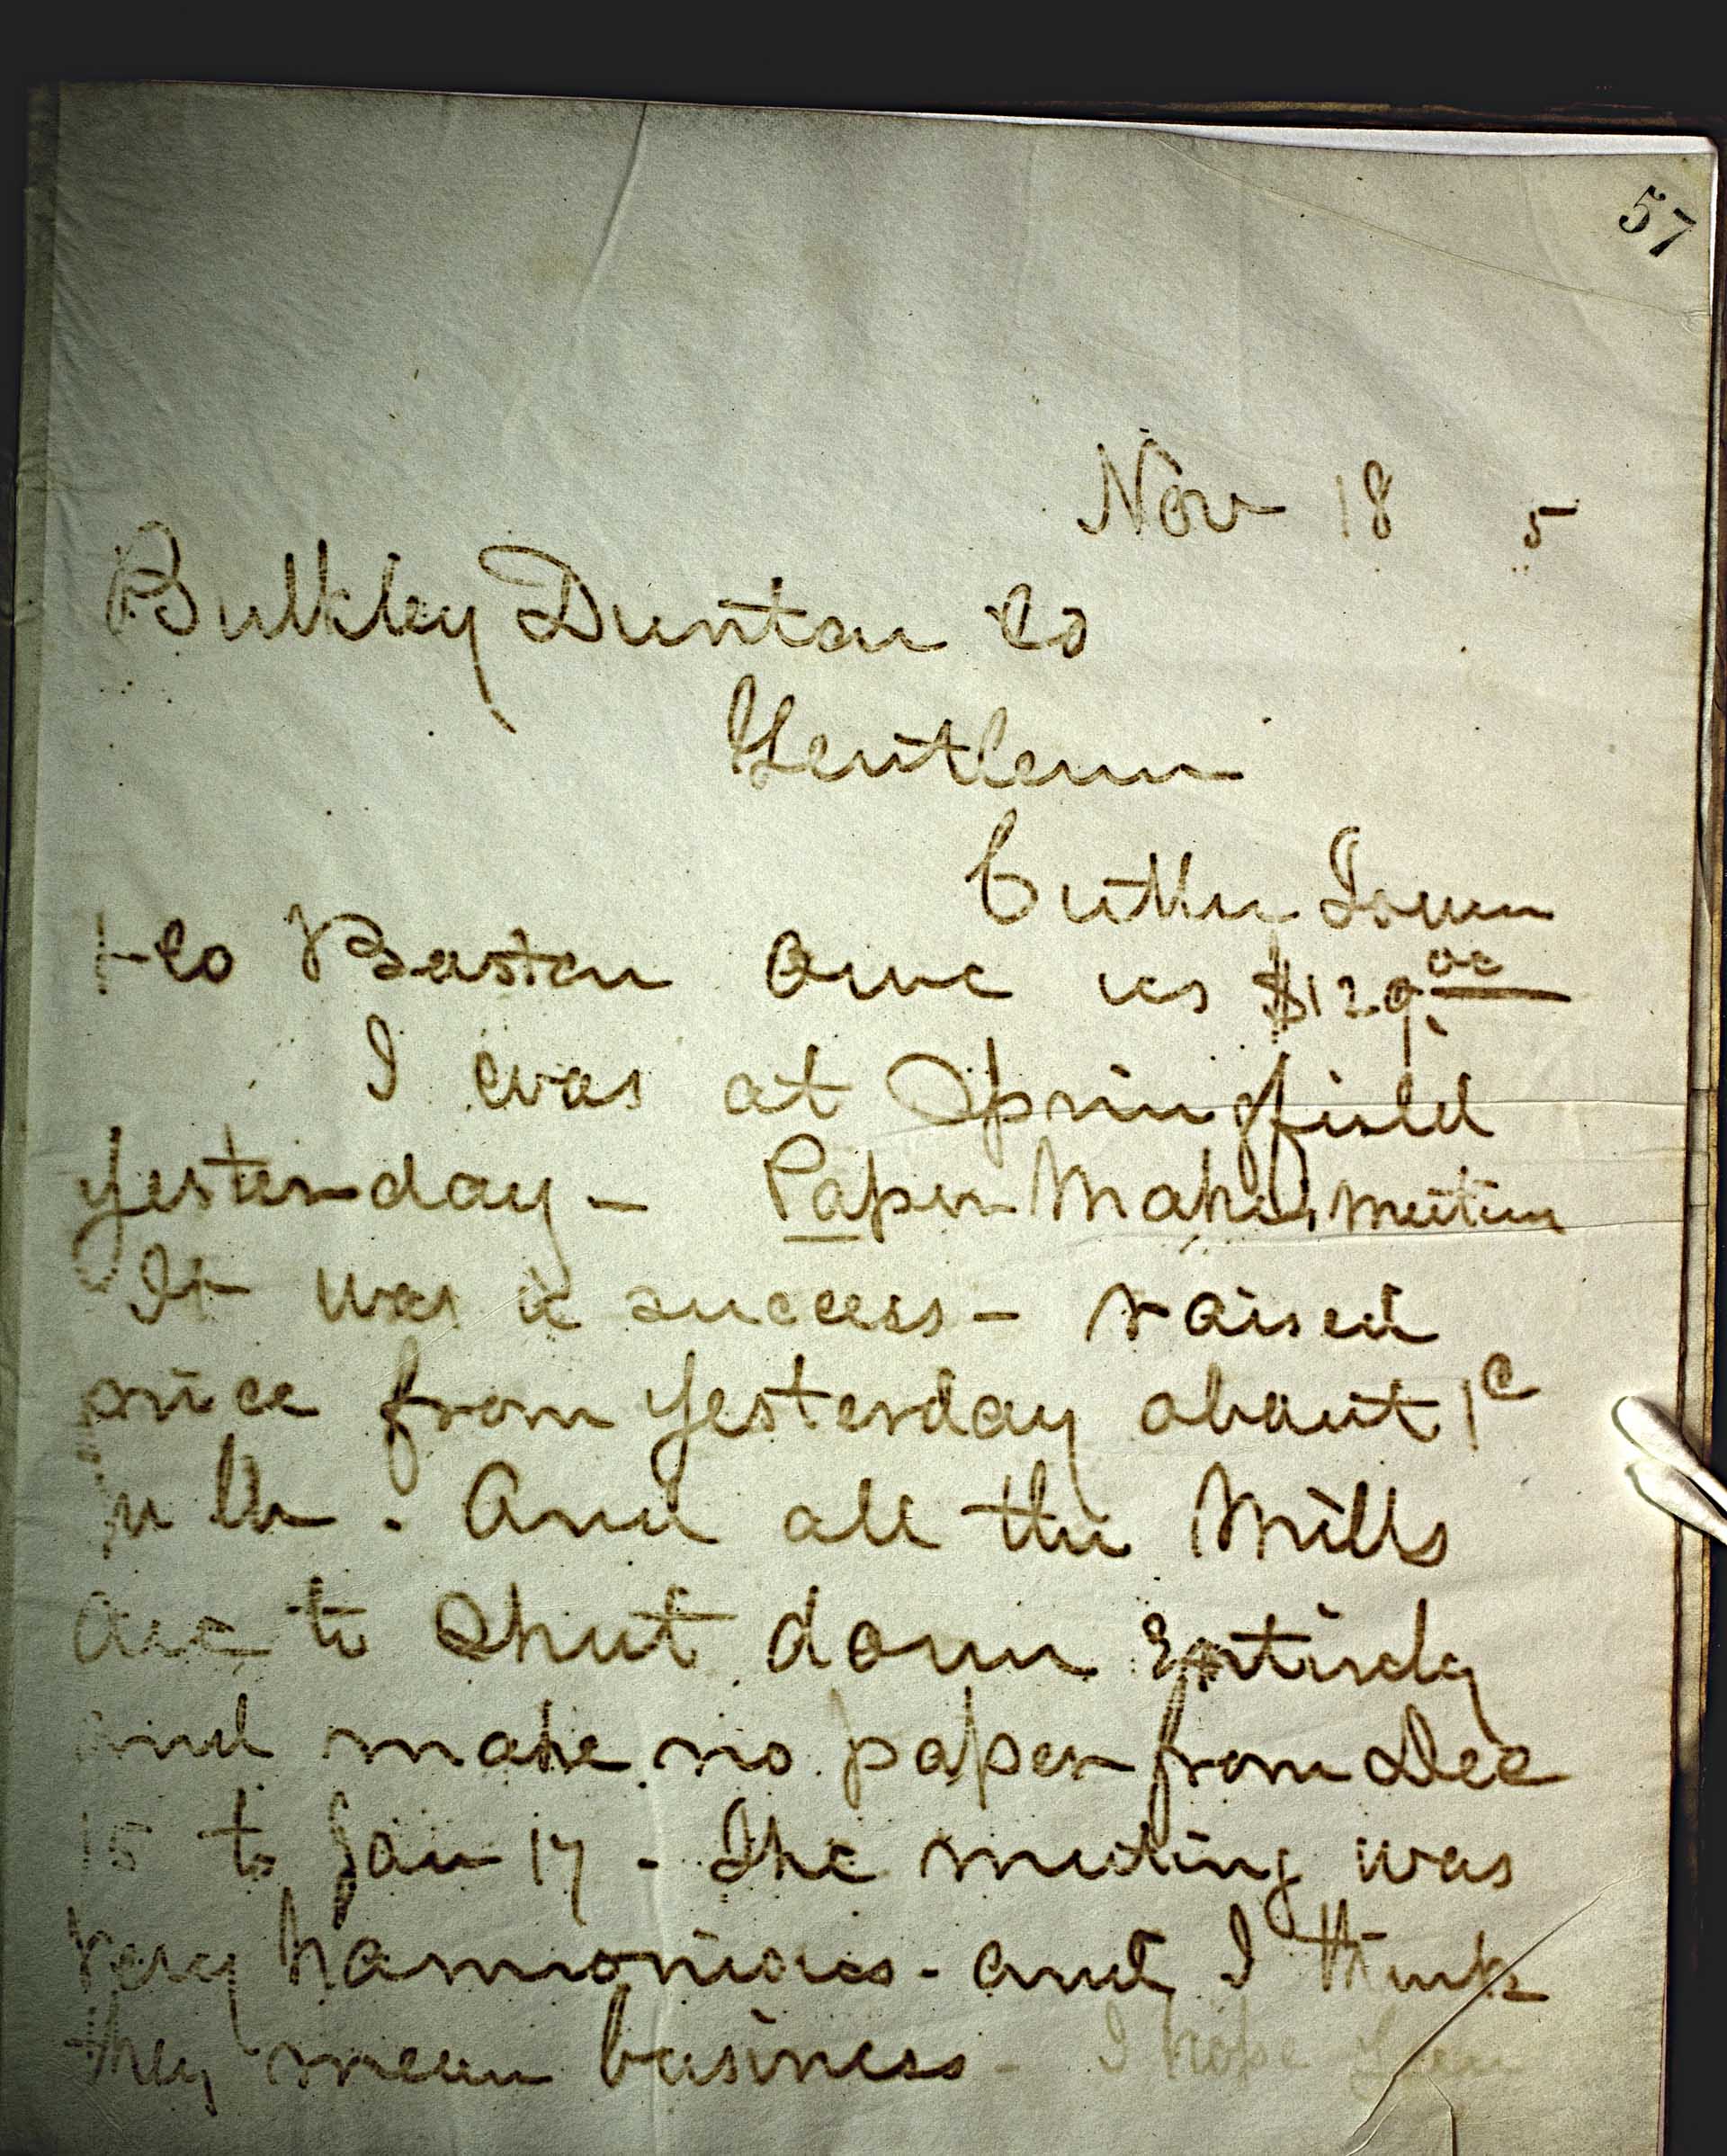 57
Nov 18 5
Bulkley Dunton Co
Gentlemen
Cutter Tower
+ Co Boston owe us $129.00
I was at Springfield
yesterday - Paper Makers meeting
It was a success - raised
price from yesterday about 1c
pr lb. And all the Mills
are to shut down entirely
and make no paper from Dec
15 to Jan 17 - The meeting was
very harmonious - and I think
they mean business - I hope you